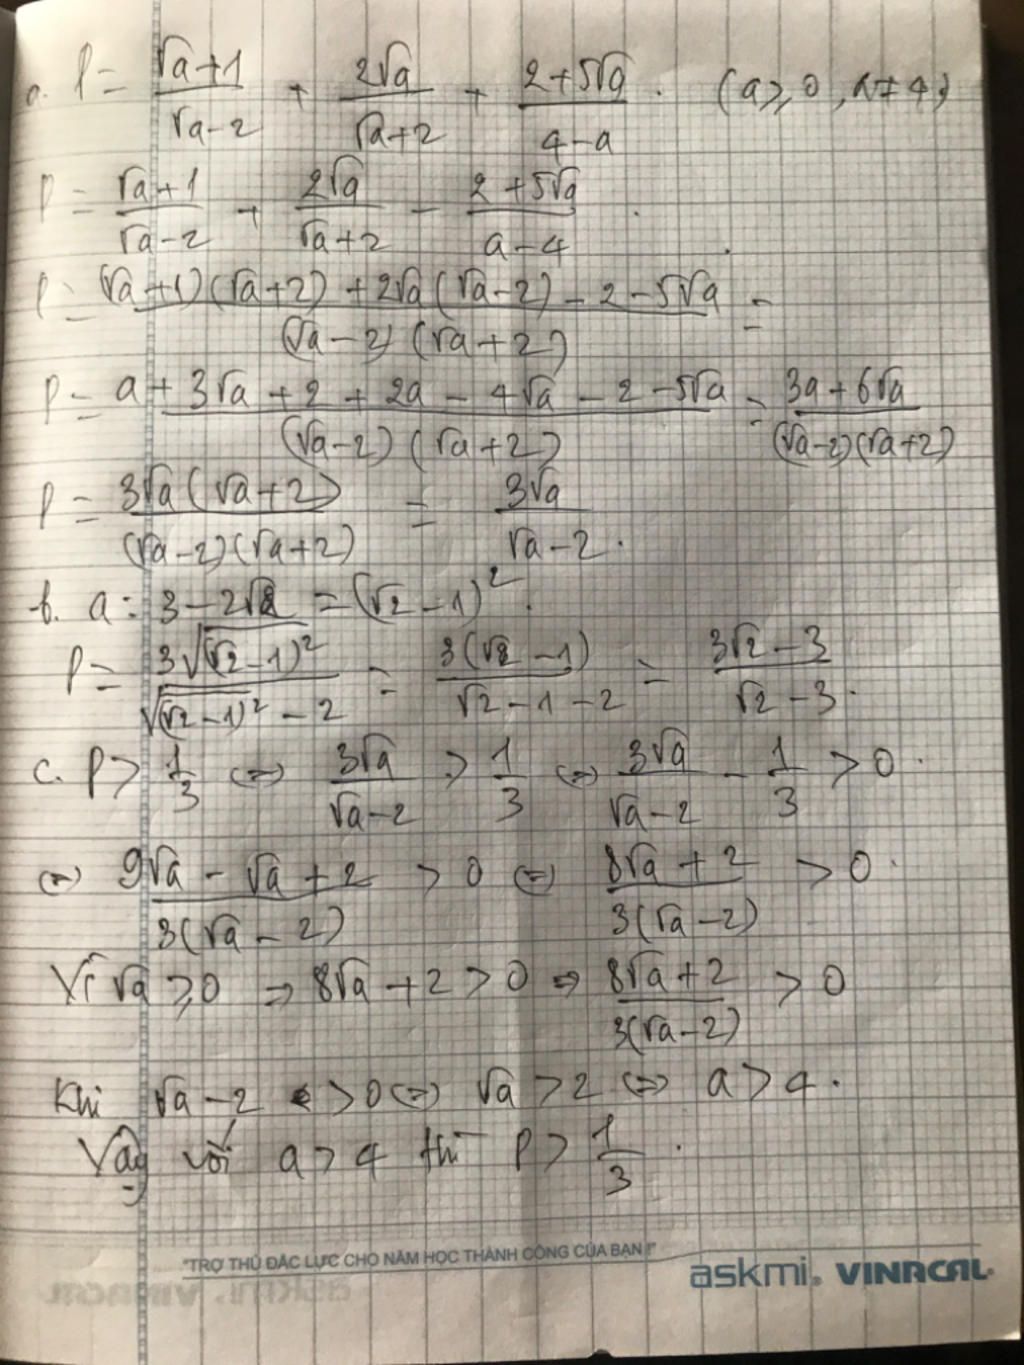 a. P = (√a+1)/(√a-2) + 2√a/(√a+2) + (2+5√a)/(4-a). (a ≥ 0, a ≠ 4)
P = (√a+1)/(√a-2) + 2√a/(√a+2) - (2+5√a)/(a-4).
P = ((√a+1)(√a+2) + 2√a(√a-2) - 2 - 5√a)/((√a-2)(√a+2)) =
P = (a + 3√a + 2 + 2a - 4√a - 2 - 5√a)/((√a-2)(√a+2)) = (3a + 6√a)/((√a-2)(√a+2))
P = 3√a(√a+2)/((√a-2)(√a+2)) = 3√a/(√a-2).
b. a = 3 - 2√2 = (√2 - 1)².
P = 3√((√2-1)²)/(√((√2-1)²) - 2) = 3(√2 - 1)/(√2 - 1 - 2) = (3√2 - 3)/(√2 - 3).
c. P > 1/3 ⇔ 3√a/(√a-2) > 1/3 ⇔ 3√a/(√a-2) - 1/3 > 0.
⇔ (9√a - √a + 2)/(3(√a-2)) > 0 ⇔ (8√a + 2)/(3(√a-2)) > 0.
Vì √a ≥ 0 ⇒ 8√a + 2 > 0 ⇒ (8√a+2)/(3(√a-2)) > 0
Khi √a - 2 > 0 ⇔ √a > 2 ⇔ a > 4.
Vậy với a > 4 thì P > 1/3.
"TRỢ THỦ ĐẮC LỰC CHO NĂM HỌC THÀNH CÔNG CỦA BẠN !"
askmi. VINACAL